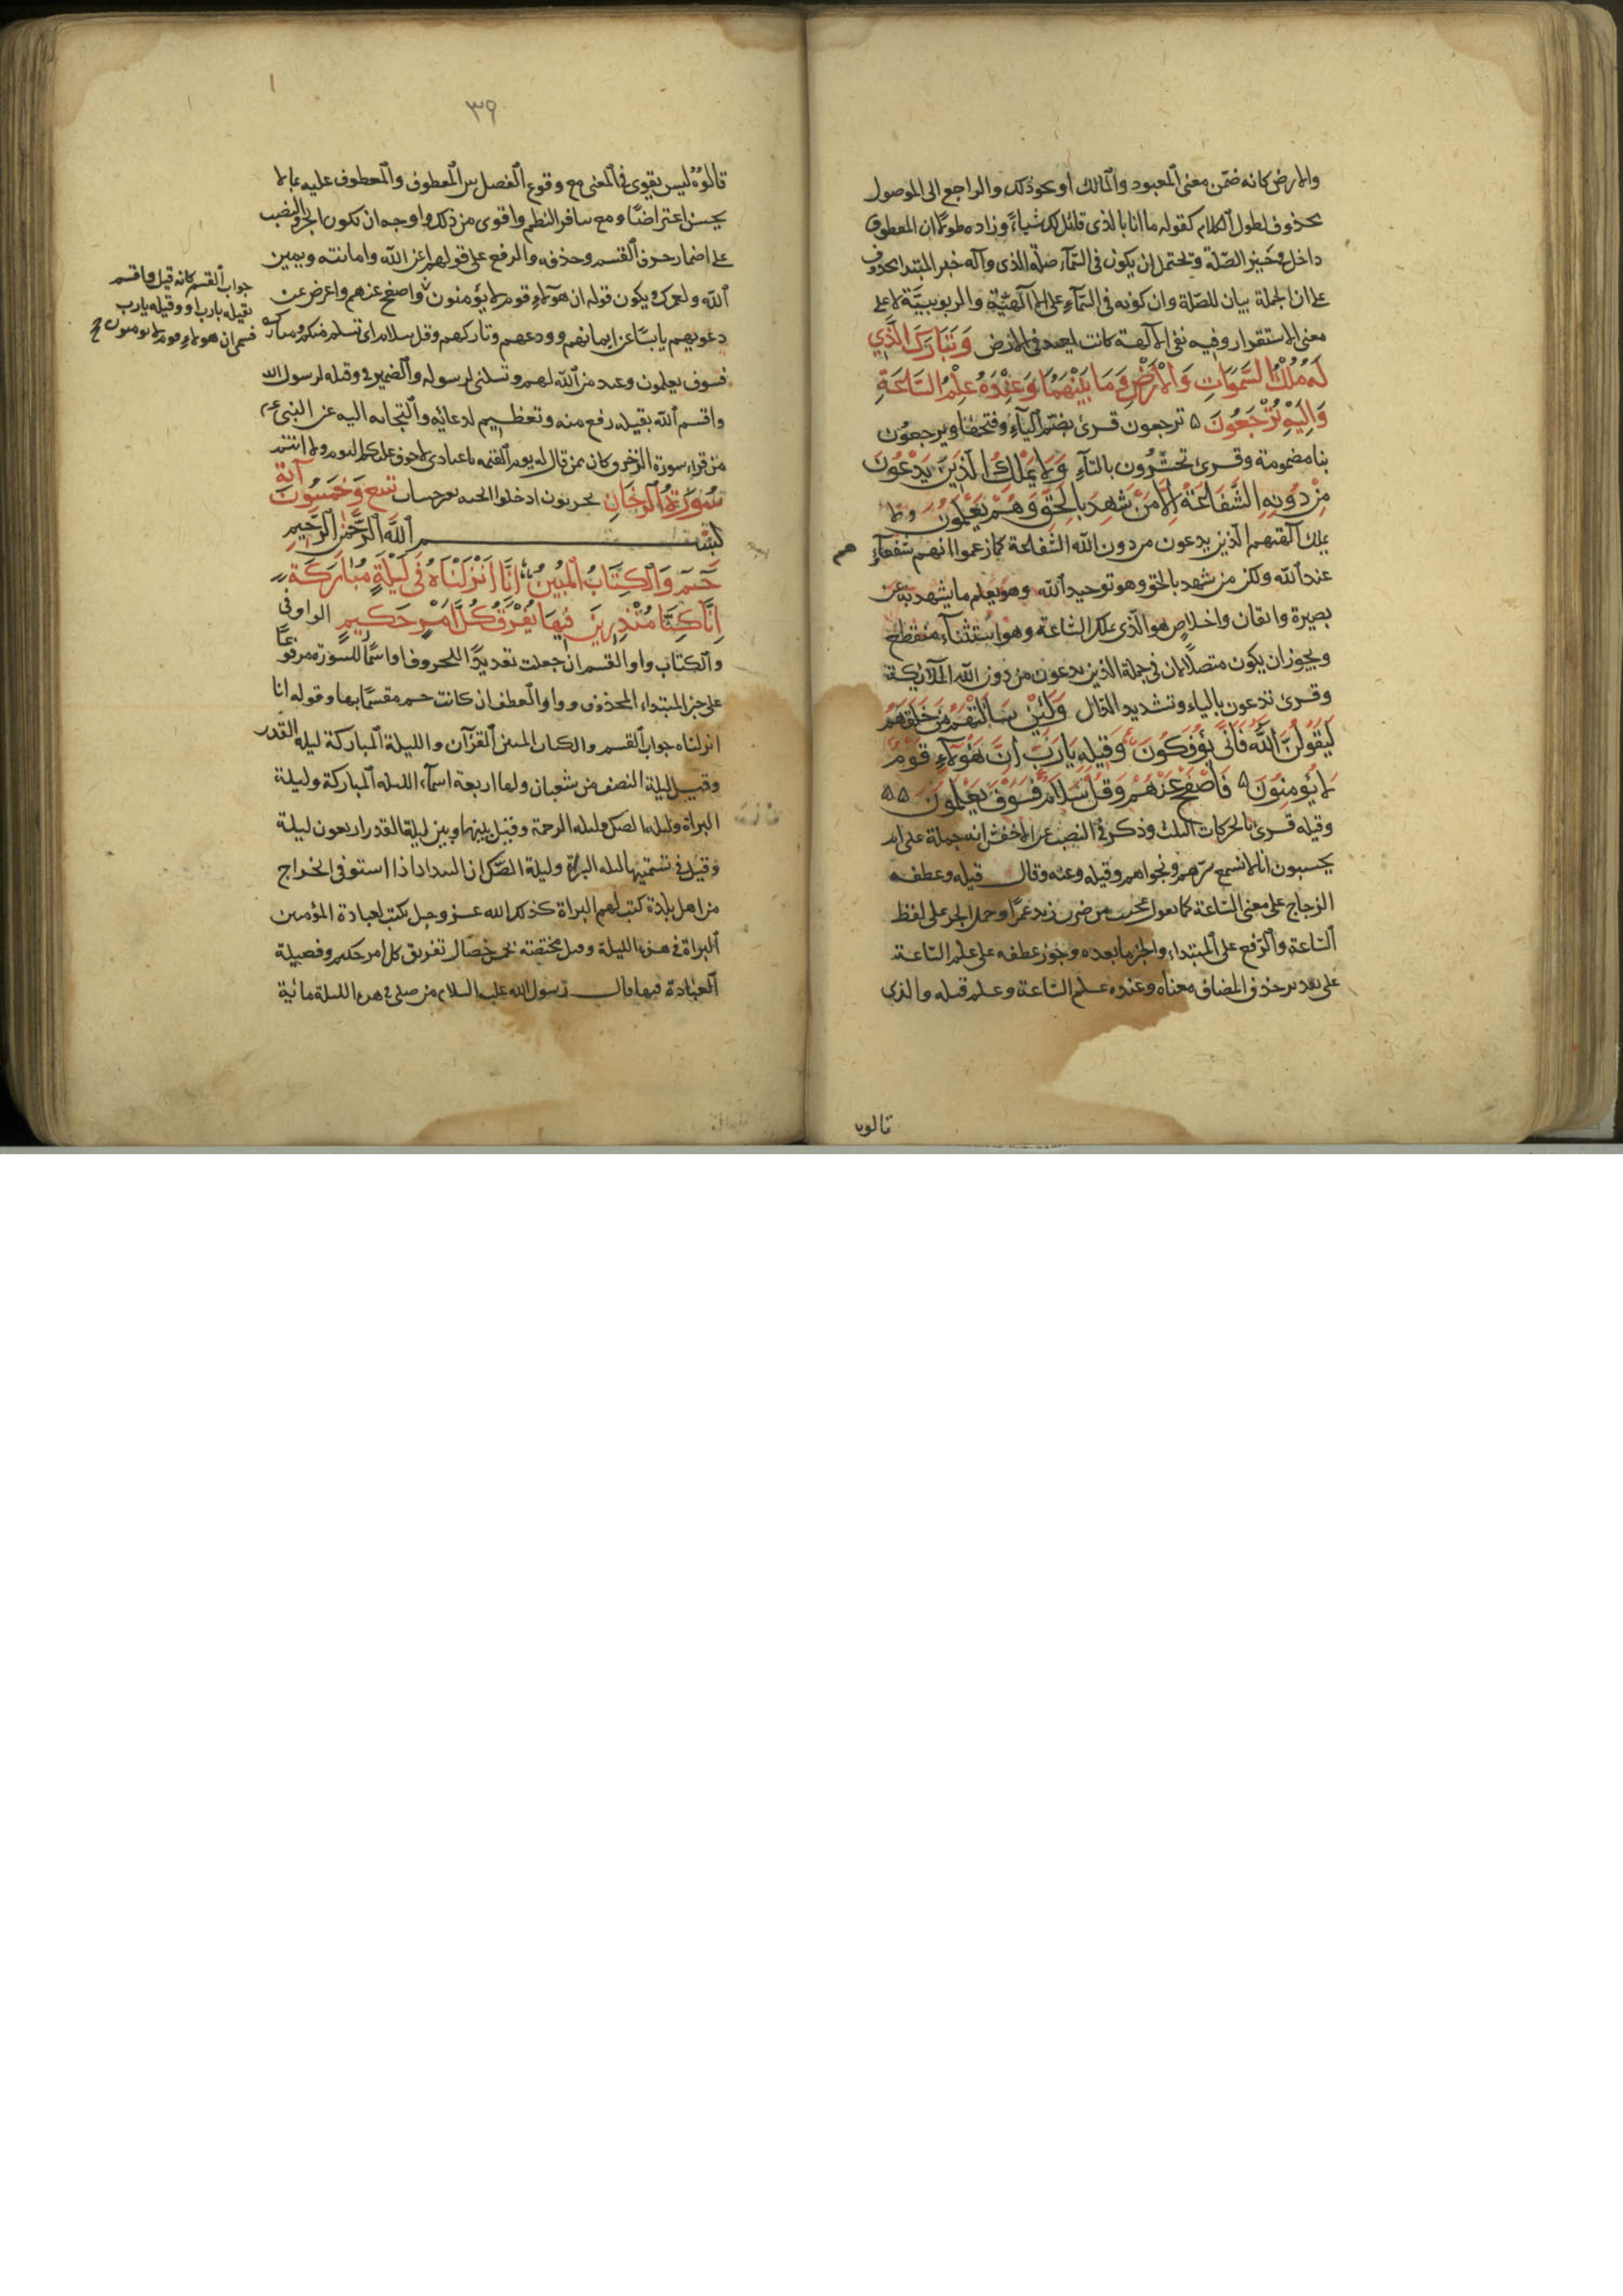 والارض كانه ضمن معنى المعبود والمالك او نحو ذلك والراجع الى الموصول
محذوف لطول الكلام كقوله ما انا بالذى قائل لك شياء وزاده طولا ان المعطوف
داخل فى خيز الصلة ويحتمل ان يكون فى السماء صلة الذى وآله خبر المبتدا محذوف
على ان الجملة بيان للصلة وان كونه فى السماء على الالهية والربوبية لا على
معنى الاستقرار وفيه نفى الآلهة كانت تعبد فى الارض وَتَبَارَكَ الَّذِي
لَهُ مُلْكُ السَّمٰوَاتِ وَالْاَرْضِ وَمَا بَيْنَهُمَا وَعِنْدَهُ عِلْمُ السَّاعَةِ
وَاِلَيْهِ تُرْجَعُونَ ترجعون قرئ بضم التاء وفتحها ويرجعون
بيا مضمومة وقرئ تحشرون بالتاء وَلَا يَمْلِكُ الَّذِينَ يَدْعُونَ
مِنْ دُونِهِ الشَّفَاعَةَ اِلَّا مَنْ شَهِدَ بِالْحَقِّ وَهُمْ يَعْلَمُونَ ولا
يملك آلهتهم الذين يدعون من دون الله الشفاعة كما زعموا انهم شفعاءهم
عند الله ولكن من شهد بالحق وهو توحيد الله وهو يعلم ما يشهد به عن
بصيرة وايقان واخلاص هو الذى يملك الشفاعة وهو استثناء منقطع
ويجوز ان يكون متصلا لان فى جملة الذين يدعون من دون الله الملائكة
وقرئ تدعون بالياء وتشديد الدال وَلَئِنْ سَاَلْتَهُمْ مَنْ خَلَقَهُمْ
لَيَقُولُنَّ اللهُ فَاَنّٰى يُؤْفَكُونَ وَقِيلِهِ يَارَبِّ اِنَّ هٰؤُلَاءِ قَوْمٌ
لَا يُؤْمِنُونَ فَاصْفَحْ عَنْهُمْ وَقُلْ سَلَامٌ فَسَوْفَ يَعْلَمُونَ
وقيله قرئ بالحركات الثلث وذكر فى النصب عن الاخفش انه حمله على ام
يحسبون انا لا نسمع سرهم ونجواهم وقيله وعنه وقال قيله وعطفه
الزجاج على معنى الساعة كما تقول عجبت من ضرب زيد وعمرا وحمل الجر على لفظ
الساعة والرفع على المبتداء والخبر ما بعده وجوز عطفه على علم الساعة
على تقدير حذف المضاف معناه وعنده علم الساعة وعلم قيله والذى
قالوه
٣٩
قالوه ليس بقوى فى المعنى مع وقوع الفصل بين المعطوف والمعطوف عليه بما لا
يحسن اعتراضا ومع تنافر النظم واقوى من ذلك واوجه ان يكون الجر والنصب
على اضمار حرف القسم وحذفه والرفع على قولهم ايمن الله وامانته ويمين
الله ولعمرك ويكون قوله ان هؤلاء قوم لا يؤمنون واصفح عنهم واعرض عن
دعوتهم يايسا عن ايمانهم وودعهم وتاركهم وقل سلام اى تسلم منكم ومتاركة
فسوف يعلمون وعيد من الله لهم وتسلى لرسوله والضمير فى وقيله لرسول الله
واقسم الله بقيله رفع منه وتعظيم لدعائه والتجائه اليه عن النبى عم
من قراء سورة الزخرف كان ممن قال له يوم القيمة يا عبادى لا خوف عليكم اليوم ولا انتم
تحزنون ادخلوا الجنة بغير حساب سُورَةُ الدُّخَانِ تسع وَخَمسُونَ آية
بسم الله الرحمن الرحيم
حٰمٓ وَالْكِتَابِ الْمُبِينِ اِنَّا اَنْزَلْنَاهُ فِى لَيْلَةٍ مُبَارَكَةٍ
اِنَّا كُنَّا مُنْذِرِينَ فِيهَا يُفْرَقُ كُلُّ اَمْرٍ حَكِيمٍ الواو فى
والكتاب واو القسم ان جعلت تعديدا للحروف او اسما للسورة مرفوعا
على خبر المبتداء المحذوف وواو العطف ان كانت حم مقسما بها وقوله انا
انزلناه جواب القسم والكتاب المبين القرآن والليلة المباركة ليلة القدر
وقيل ليلة النصف من شعبان ولها اربعة اسماء الليلة المباركة وليلة
البراة وليلة الصك وليلة الرحمة وقيل بينها وبين ليلة القدر اربعون ليلة
وقيل فى تسميتها ليلة البراة وليلة الصك ان البندار اذا استوفى الخراج
من اهل بلدة كتب لهم البراة كذلك الله عز وجل يكتب لعباده المؤمنين
البراة فى هذه الليلة وقيل مختصة بخمس خصال تفريق كل امر حكيم وفضيلة
العبادة فيها قال رسول الله عليه السلام من صلى فى هذه الليلة مائة
جواب القسم كانه قيل واقسم
بقيله يارب او وقيله يارب
قسمى ان هؤلاء قوم لا يؤمنون